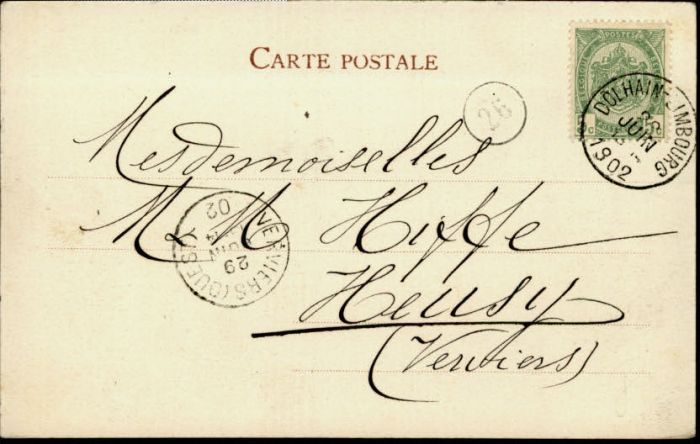 CARTE POSTALE
POSTES
26
DOLHAIN-LIMBOURG
JUIN
1902
Mesdemoiselles
M M Hiffe
Heusy
(Verviers)
VERVIERS (OUEST)
29
JUIN
02